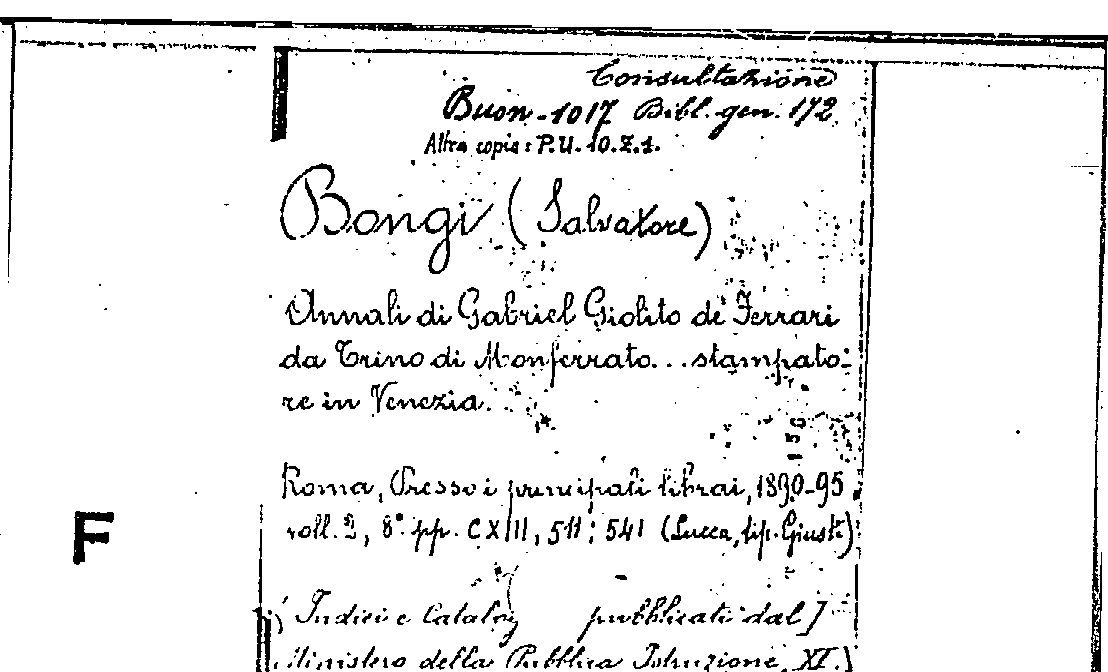 Consultazione
Buon. 1017 Bibl. gen. 172
Altra copia: P.U. 10.Z.1.
Bongi (Salvatore)
Annali di Gabriel Giolito de' Ferrari
da Trino di Monferrato... stampato-
re in Venezia.
Roma, Presso i principali librai, 1890-95
voll. 2, 8° pp. CXIII, 511; 541 (Lucca, tip. Giusti)
F
Indici e Catalog pubblicati dal]
Ministero della Pubblica Istruzione, XI.)